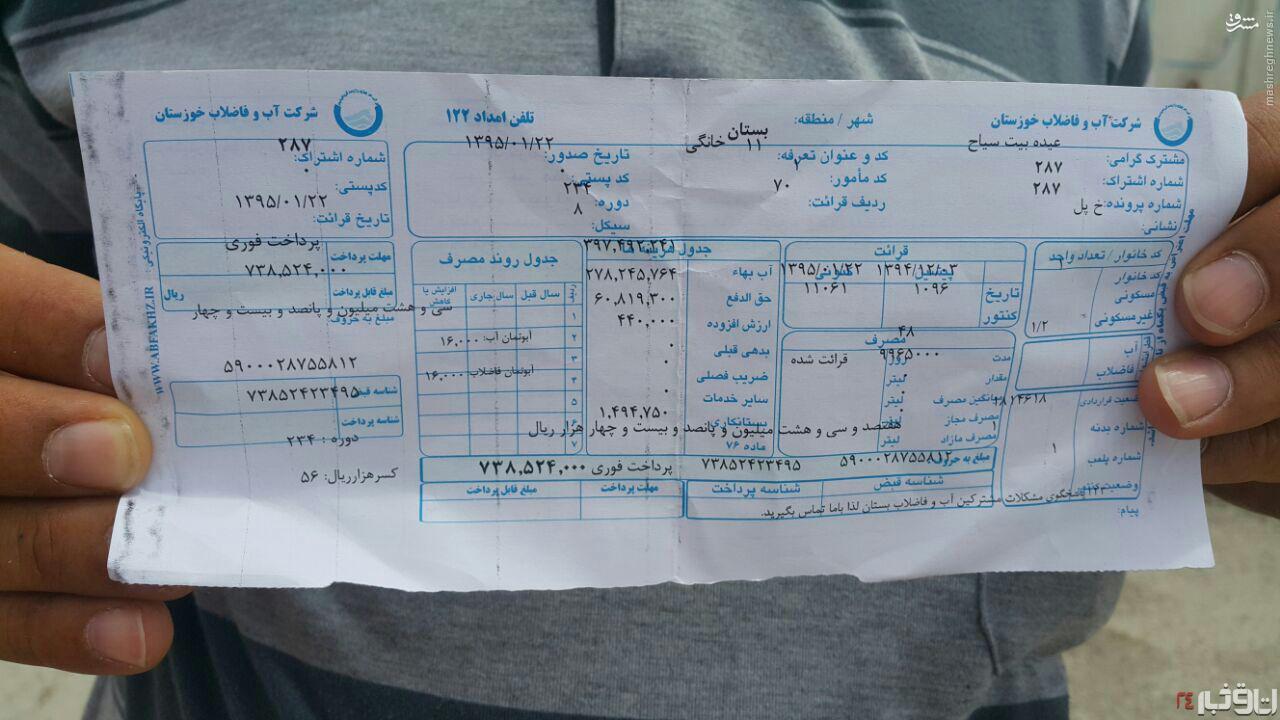 مشرق
mashreghnews.ir
شرکت آب و فاضلاب خوزستان
شهر / منطقه: بستان
تلفن امداد ۱۲۲
مشترک گرامی: عبده بیت سیاح
شماره اشتراک: ۲۸۷
شماره پرونده: ۲۸۷
نشانی: خ پل
کد و عنوان تعرفه: ۱۱ خانگی
کد مأمور: ۲
ردیف قرائت: ۷۰
تاریخ صدور: ۱۳۹۵/۰۱/۲۲
کد پستی: ۰
دوره: ۲۳۴
سیکل: ۸
کد خانوار / تعداد واحد
کد خانوار
مسکونی
غیرمسکونی
۱/۲
آب
فاضلاب
وضعیت قراردادی
شماره بدنه
شماره پلمب ۱
پیام:
قرائت
پیشین
کنونی
تاریخ ۱۳۹۴/۱۲/۰۳ ۱۳۹۵/۰۱/۲۲
کنتور ۱۰۹۶ ۱۱۰۶۱
مصرف
مدت ۴۸ روز قرائت شده
مقدار ۹۹۶۵۰۰۰ لیتر
میانگین مصرف ۰ لیتر
مصرف مجاز ۰ لیتر
مصرف مازاد لیتر
جدول هزینه ها
۳۹۷,۴۹۲,۲۴۵
آب بهاء ۲۷۸,۲۴۵,۷۶۴
حق الدفع ۶۰,۸۱۹,۳۰۰
ارزش افزوده ۴۴۰,۰۰۰
بدهی قبلی ۰
ضریب فصلی ۰
سایر خدمات ۰
بستانکاری ۱,۴۹۴,۷۵۰
ماده ۷۶
جدول روند مصرف
ردیف سال قبل سال جاری افزایش یا کاهش
۱
۲ آبونمان آب: ۱۶,۰۰۰
۳
۴ آبونمان فاضلاب: ۱۶,۰۰۰
۵
۷
هفتصد و سی و هشت میلیون و پانصد و بیست و چهار هزار ریال
مبلغ به حروف
۵۹۰۰۰۲۸۷۵۵۸۱۲ ۷۳۸۵۲۴۲۳۴۹۵ پرداخت فوری ۷۳۸,۵۲۴,۰۰۰
شناسه قبض شناسه پرداخت مهلت پرداخت مبلغ قابل پرداخت
پاسخگوی مشکلات مشترکین آب و فاضلاب بستان لذا باما تماس بگیرید.
شرکت آب و فاضلاب خوزستان
شماره اشتراک: ۲۸۷
کدپستی: ۰
تاریخ قرائت: ۱۳۹۵/۰۱/۲۲
مهلت پرداخت پرداخت فوری
مبلغ قابل پرداخت ۷۳۸,۵۲۴,۰۰۰ ریال
مبلغ به حروف سی و هشت میلیون و پانصد و بیست و چهار
۵۹۰۰۰۲۸۷۵۵۸۱۲
شناسه قبض ۷۳۸۵۲۴۲۳۴۹۵
شناسه پرداخت
دوره : ۲۳۴
کسرهزارریال: ۵۶
پایگاه الکترونیکی: WWW.ABFAKHZ.IR
اتاق خبر ۲۴